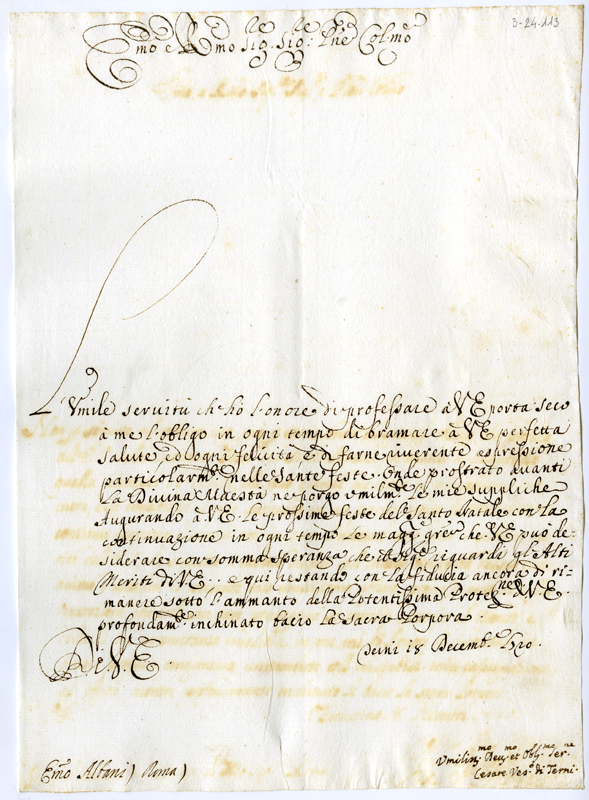 3-24-113
Em̃o e Rm̃o Sig. Sig: Pñe Colm̃o
L'Vmile servitù ch'hò l'onore di professare à VE porta seco
à me l'obligo in ogni tempo di bramare à VE perfetta
salute, ed ogni felicità, e di farne riverente espressione
particolarm.e nelle Sante feste. Onde prostrato avanti
La Divina Maestà ne porgo vmilm.e le mie suppliche
Augurando à VE. le prossime feste del Santo Natale con la
continuazione in ogni tempo le magg: gre che VE può de-
siderare con somma speranza che il Sig.e riguardi gl'Alti
Meriti di VE.. e qui restando con la fiducia ancora di ri-
manere sotto l'ammanto della Potentissima Protez.ne di VE.
profondam.e inchinato bacio la Sacra Porpora.
Terni 18 Decemb.e 1720.
Di V.E.
Em̃o Albani) Roma)
Vmilin:mo Deu:mo et Obl:mo Ser.ne
Cesare Ves.o di Terni